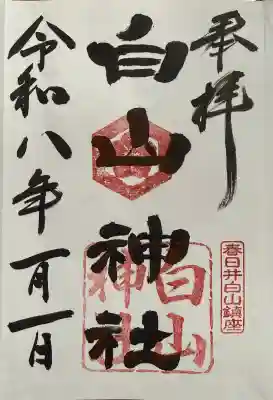 奉拝
春日井白山鎮座
白山神社
白山神社
令和八年一月一日